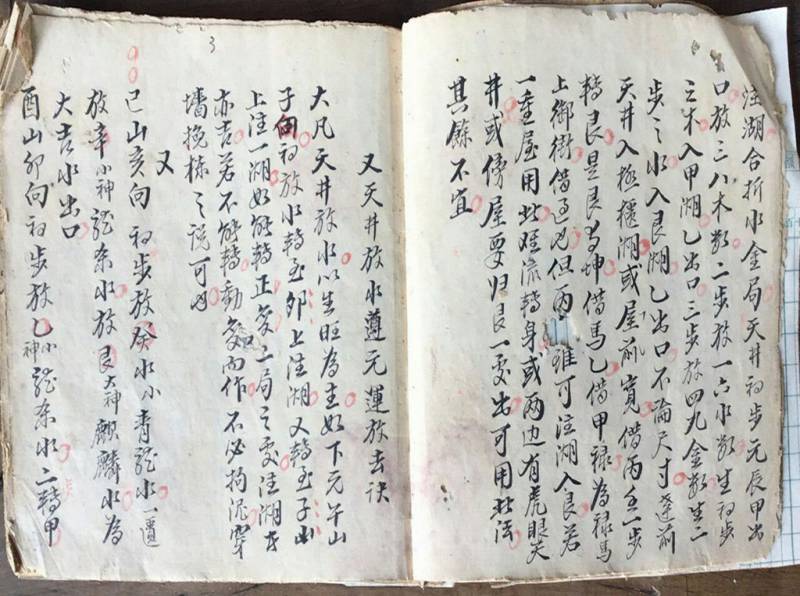 注湖合折水金局天井初步元辰甲出
口放三八木数二步放一六水数生初步
之木入甲湖乙出口三步放四九金数生二
步之水入艮湖乙出口不論尺寸逢前
天井入極穏湖或屋前寬借丙壬一步
轉艮是艮為坤借馬乙借甲禄為禄馬
上御街借過也但两 雖可注湖入艮若
一重屋用此旺流轉身或两边有虎眼天
井或傍屋要归艮一處出可用此法
其餘不宜
又天井放水遵元運放去訣
大凡天井放水以生旺為主如下元午山
子向初放水轉至卯上注湖又轉至子山
上注一湖如能轉正處二局之處注湖才
亦吉若不能轉動處而作不必拘泥穿
墻挽棟之說可也
又
己山亥向 初步放癸水小青龍水一遭
放辛小神龍朶水放艮大神麒麟水為
大吉水出口
酉山卯向初步放乙小神龍朶水二轉甲
3